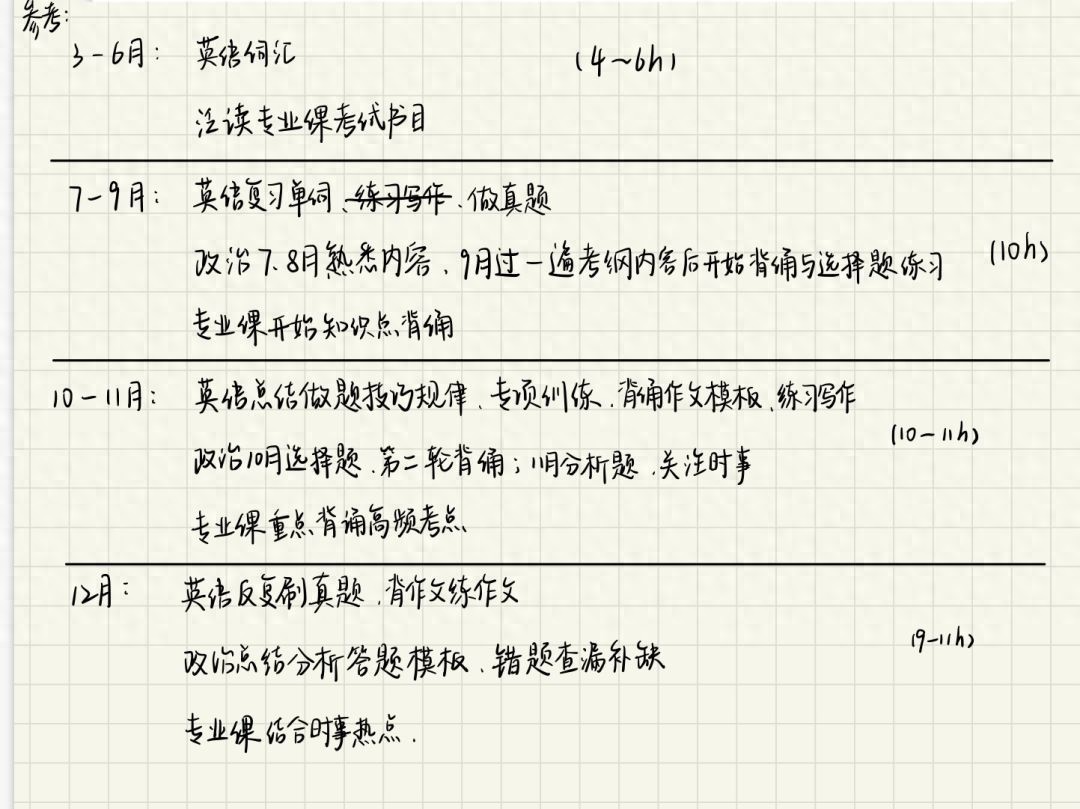 参考:
3-6月: 英语词汇 (4~6h)
泛读专业课考试书目
7-9月: 英语复习单词、练习写作、做真题
政治7、8月熟悉内容、9月过一遍考纲内容后开始背诵与选择题练习 (10h)
专业课开始知识点背诵
10-11月: 英语总结做题技巧规律、专项训练、背诵作文模板、练习写作
(10-11h)
政治10月选择题、第二轮背诵;11月分析题、关注时事
专业课重点背诵高频考点
12月: 英语反复刷真题、背作文练作文
(9-11h)
政治总结分析答题模板、错题查漏补缺
专业课结合时事热点.